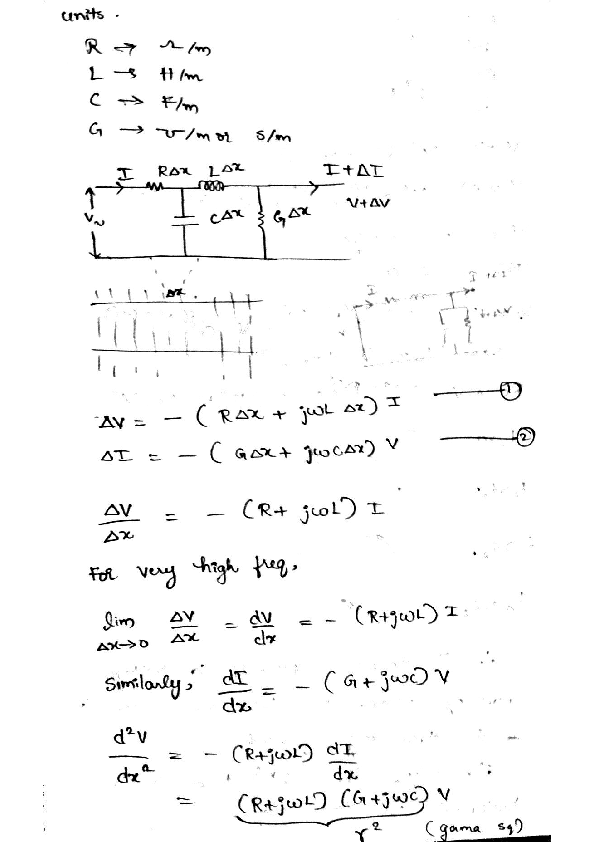 units.
R → Ω/m
L → H/m
C → F/m
G → ℧/m or S/m
I RΔx LΔx I+ΔI
V~ CΔx GΔx V+ΔV
Δx
I
V+ΔV
ΔV = - (RΔx + jωL Δx) I ①
ΔI = - (GΔx + jωCΔx) V ②
ΔV/Δx = - (R+ jωL) I
For very high freq,
lim Δx→0 ΔV/Δx = dV/dx = - (R+jωL) I
Similarly, dI/dx = - (G+jωC) V
d²V/dx² = - (R+jωL) dI/dx
= (R+jωL) (G+jωC) V
γ² (gama sq)